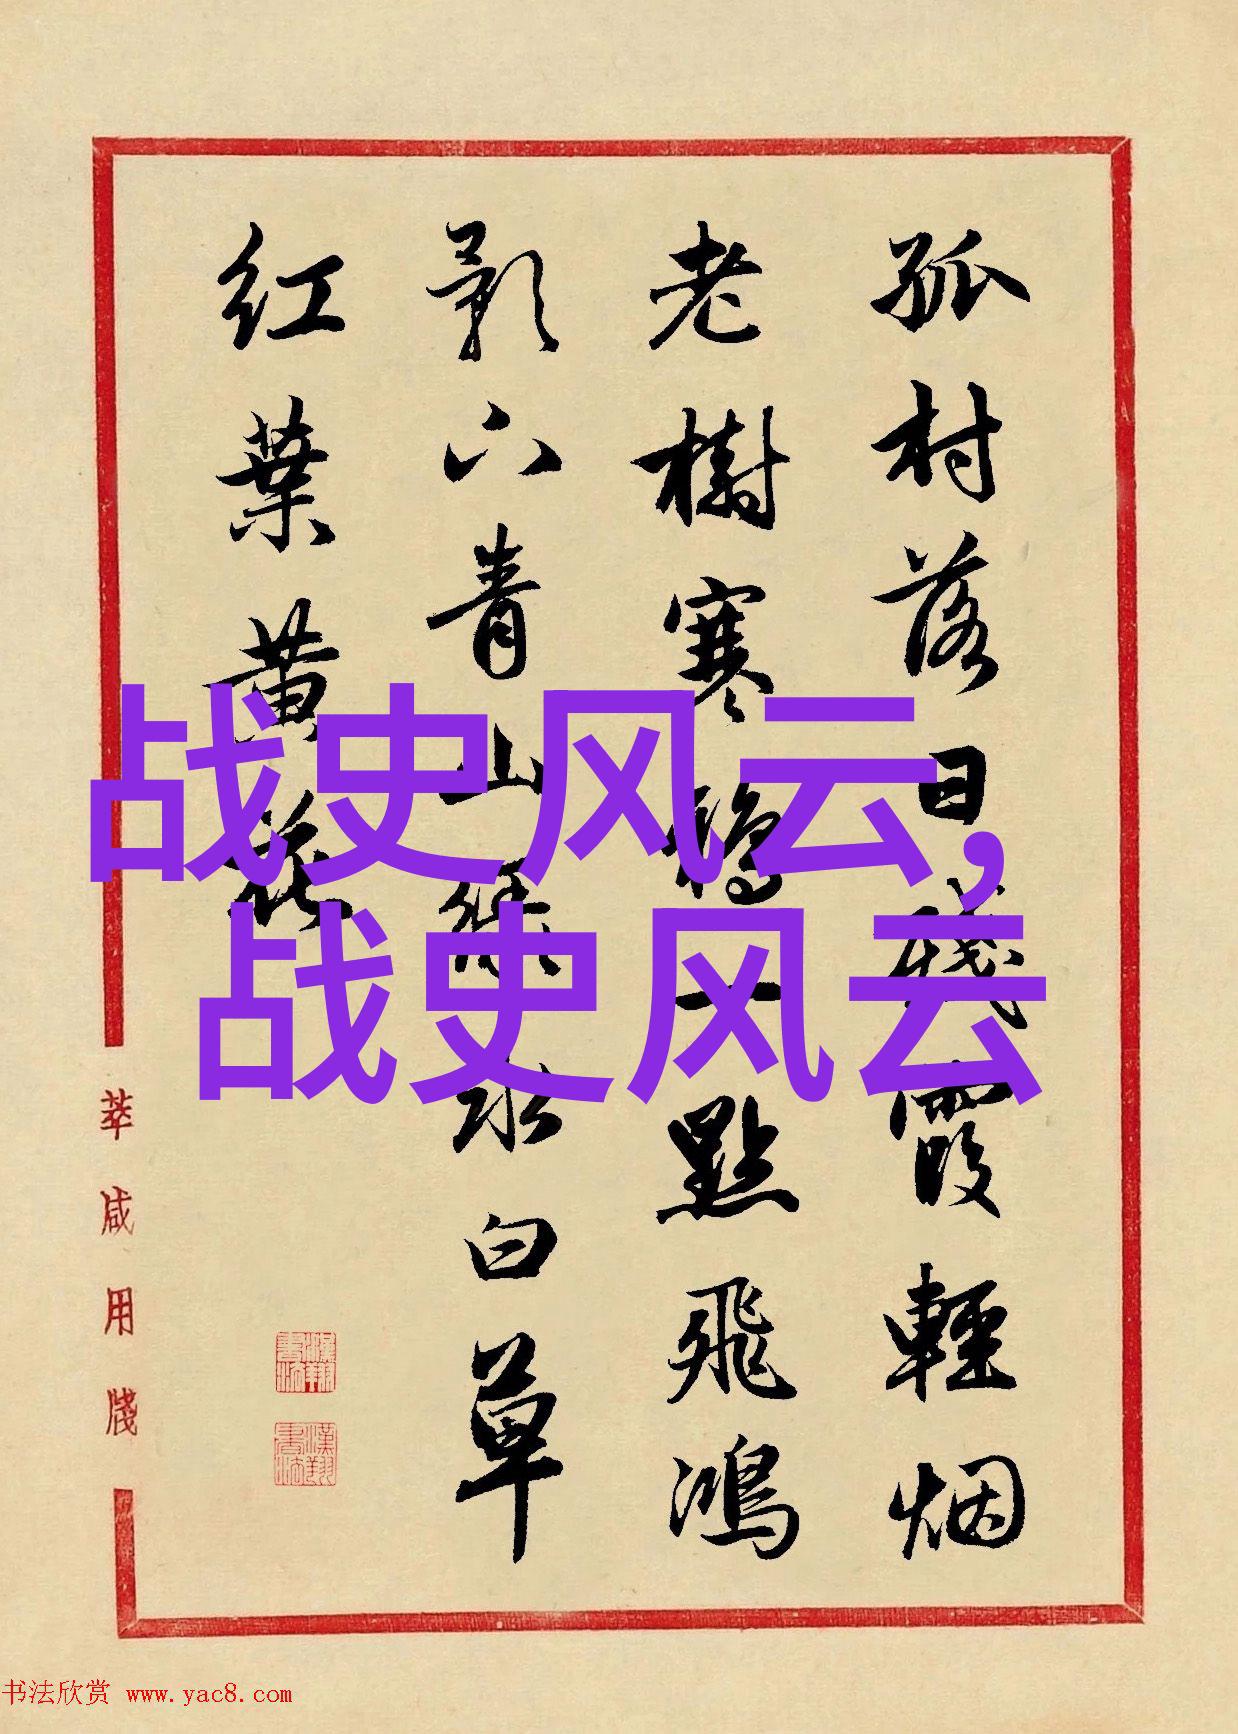 孤村落日残霞輕烟
老樹寒鴉一點飛鴻
影下青山綠水白草
紅葉黄花
战史风云,
战史风云
萃咸用牋
書法欣赏 www.yac8.com